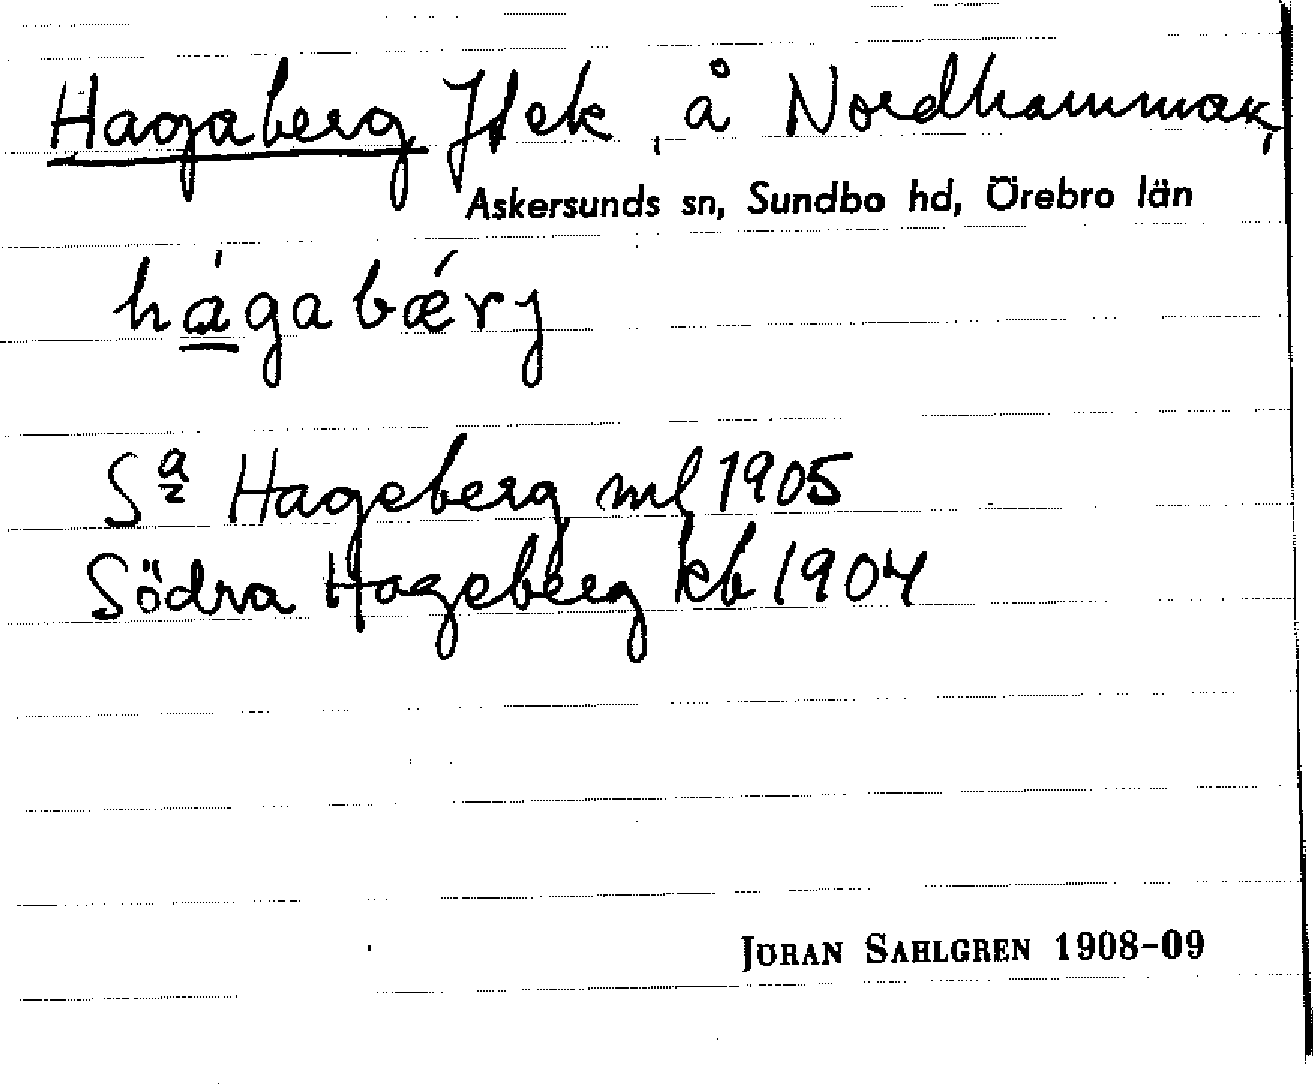 Hagaberg Jlek, å Nordhammar,
Askersunds sn, Sundbo hd, Örebro län
há̱gabǽrj
Sª Hageberg ml 1905
Södra Hageberg kb 1904
JÖRAN SAHLGREN 1908-09